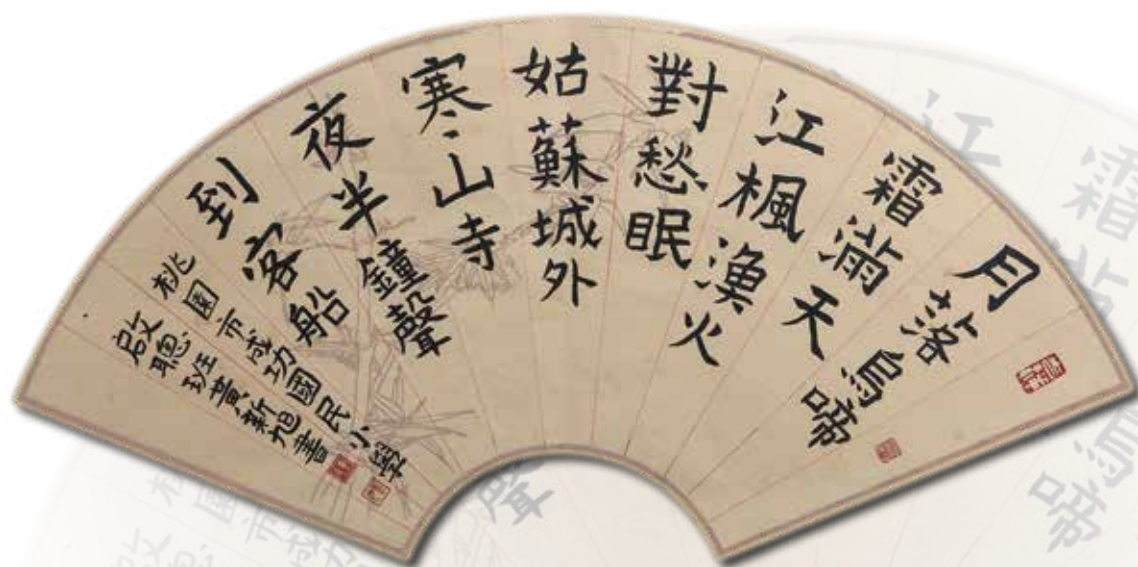 月落烏啼
霜滿天
江楓漁火
對愁眠
姑蘇城外
寒山寺
夜半鐘聲
到客船
桃園市成功國民小學
啟聰班黃新旭書